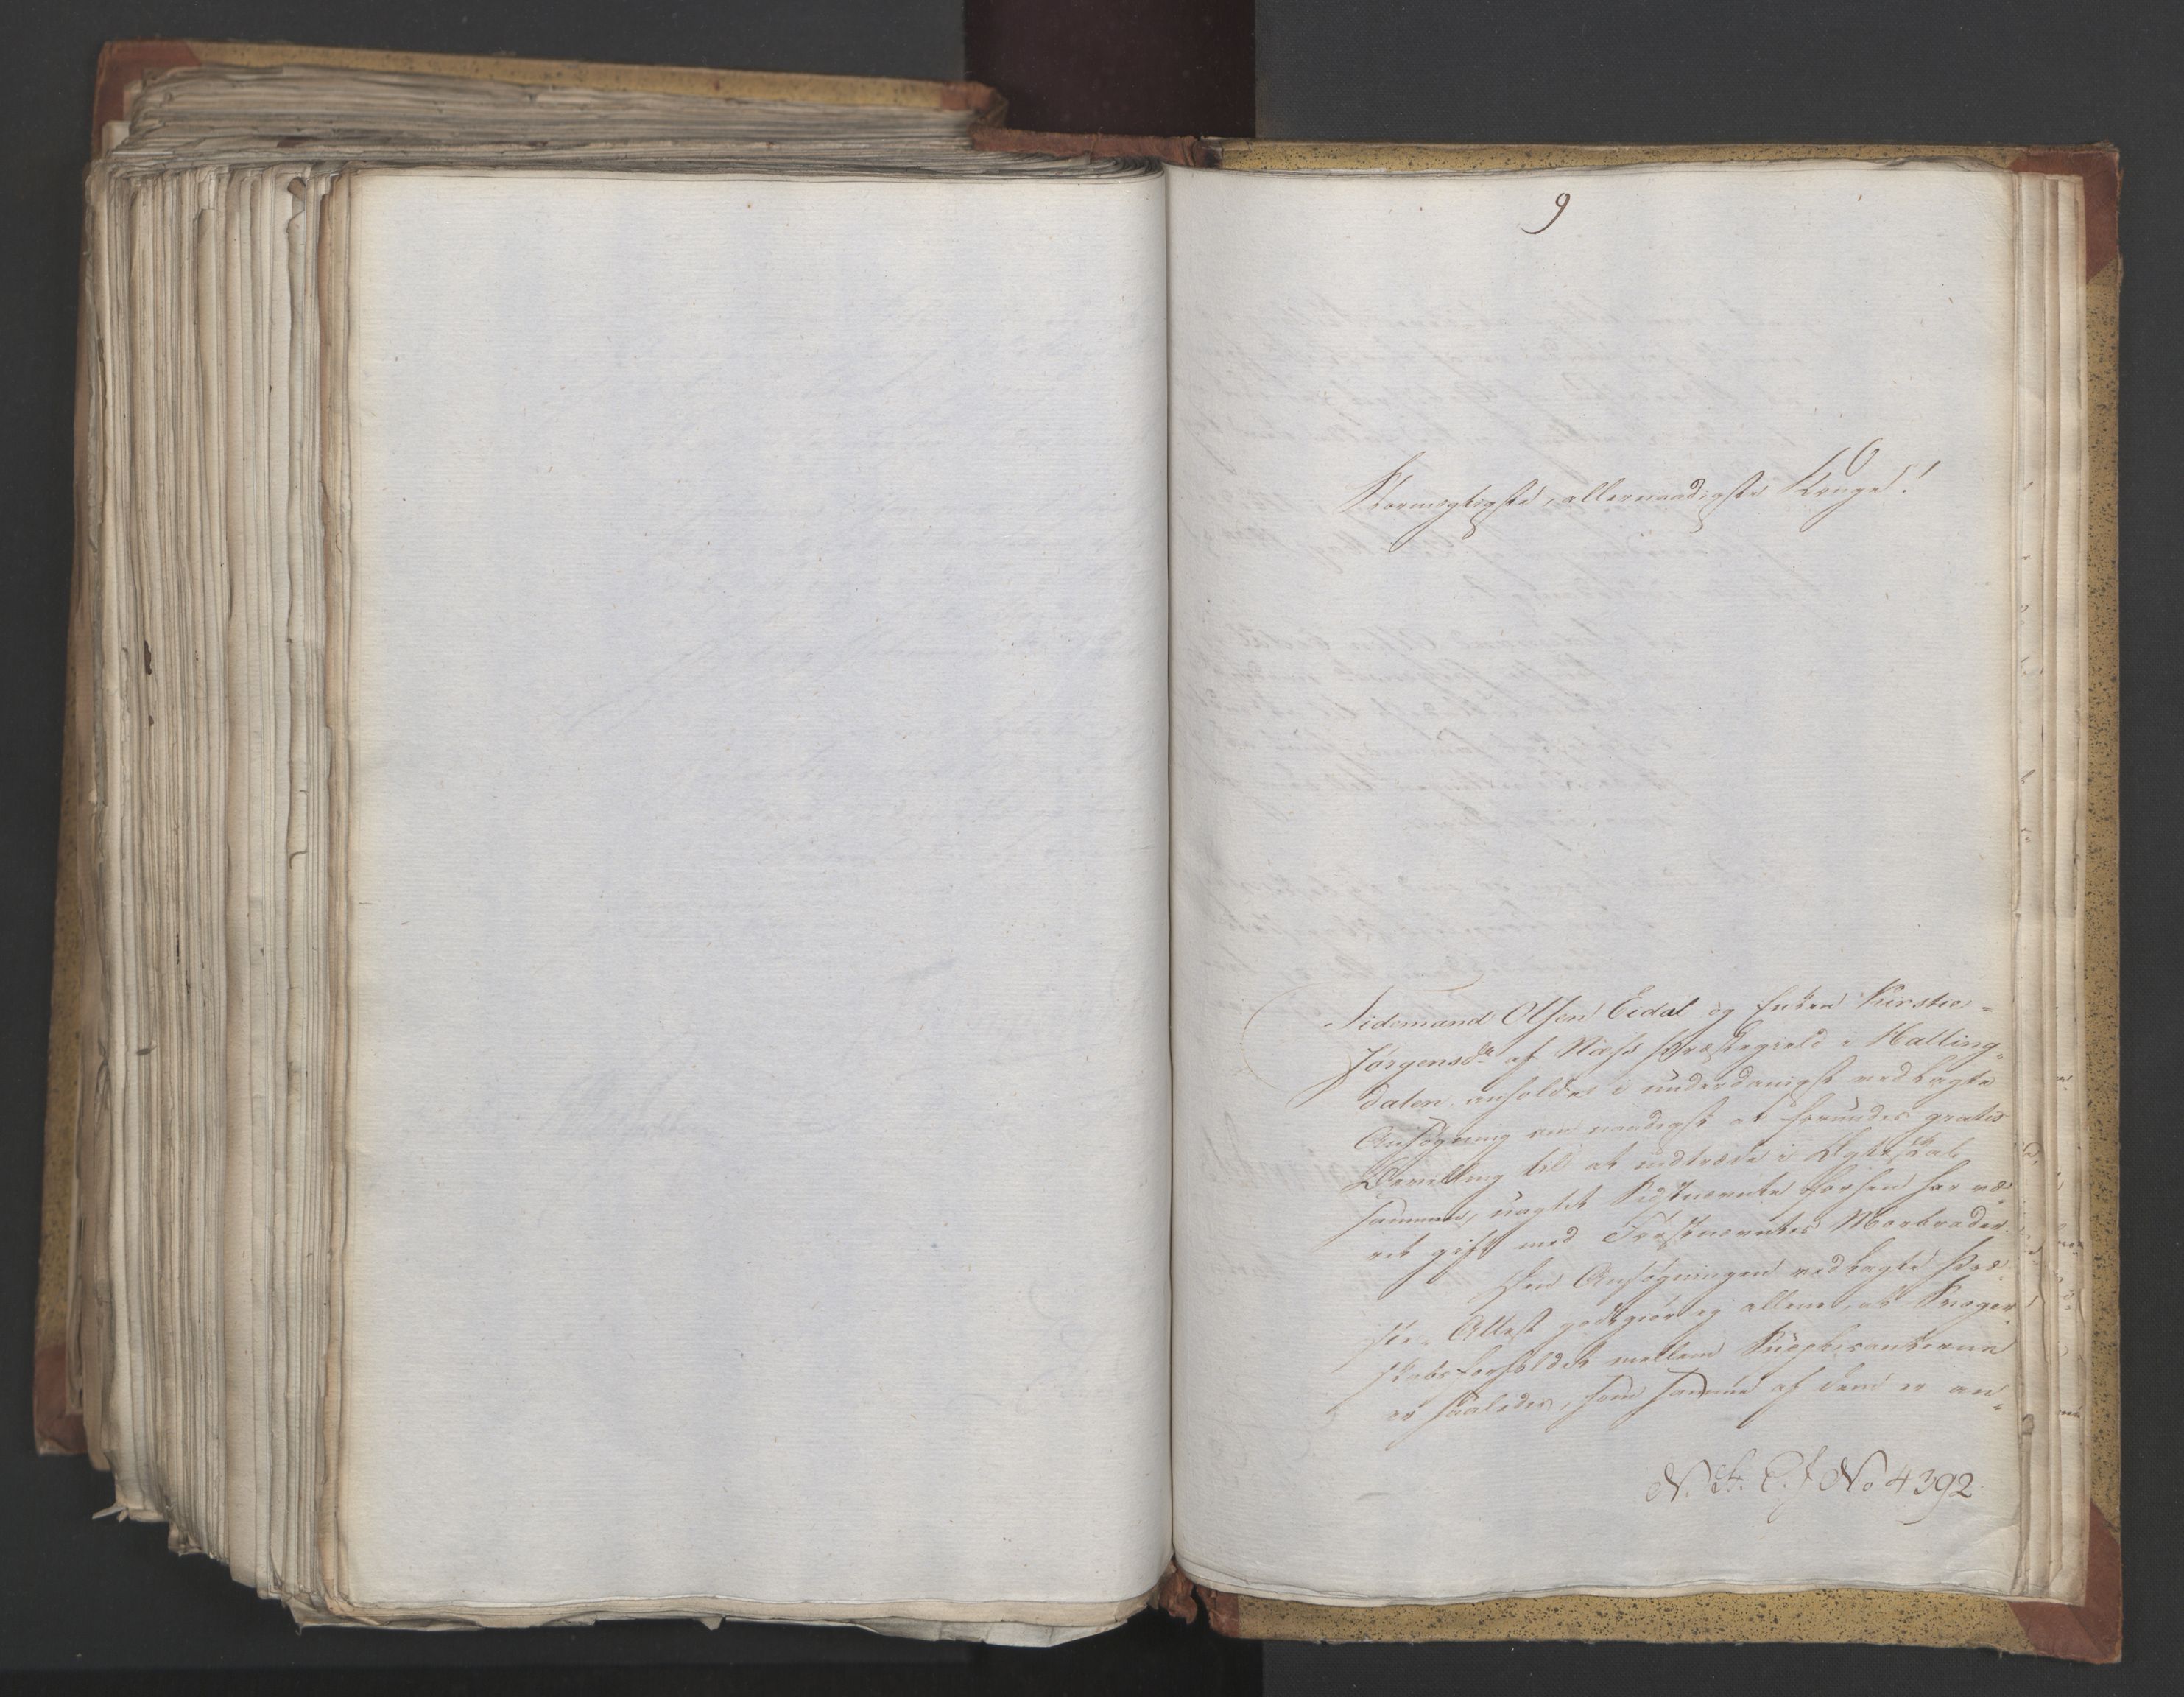 9
Stormægtigste, allernaadigste Konge!
Tidemand Olsen Eidal og Enken Kirstie
Jörgensdr af Næss Præstegield i Halling-
dalen anholder i underdanigst vedlagte
Ansøgning om naadigst at forundes gratis
Bevilling til at indtræde i Ægteskab
sammen, uagtet Sidstnævnte forhen har væ-
ret gift med Førstnævntes Morbroder.
Den Ansøgningen vedlagte Præ-
ste-Attest godtgiør ej allene, at Svoger-
skabsforholdet mellem Supplicanterne
er saaledes, som samme af dem er an-
N. St. C. J No 4392